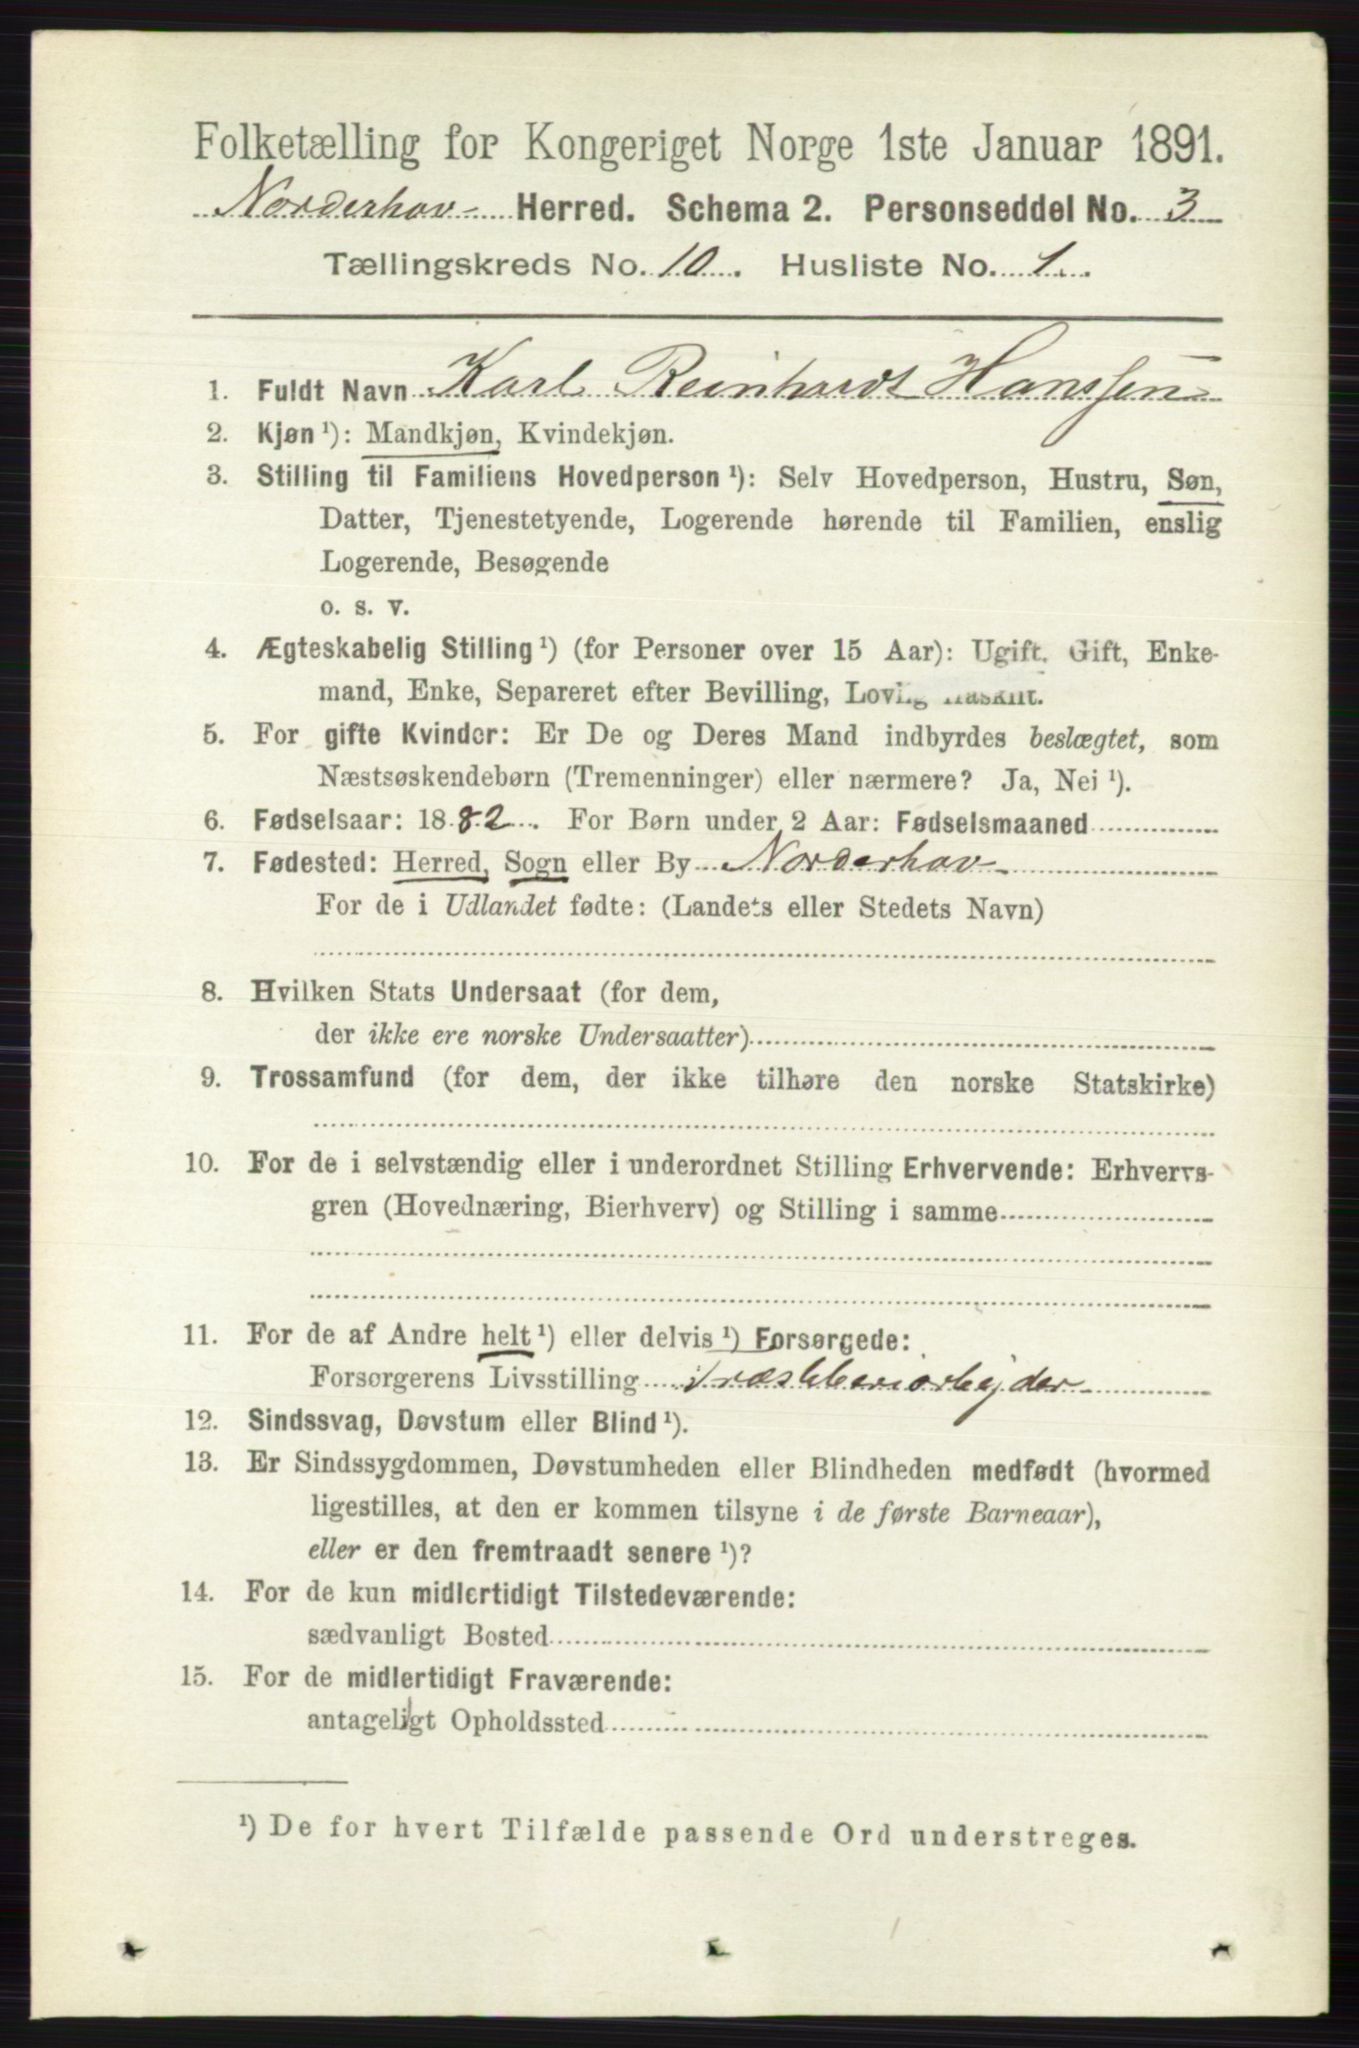 Folketælling for Kongeriget Norge 1ste Januar 1891.
Norderhov Herred. Schema 2. Personseddel No. 3
Tællingskreds No. 10. Husliste No. 1.
1. Fuldt Navn Karl Reinhardt Hanssen
2. Kjøn ¹): Mandkjøn, Kvindekjøn.
3. Stilling til Familiens Hovedperson ¹): Selv Hovedperson, Hustru, Søn,
Datter, Tjenestetyende, Logerende hørende til Familien, enslig
Logerende, Besøgende
o. s. v.
4. Ægteskabelig Stilling ¹) (for Personer over 15 Aar): Ugift, Gift, Enke-
mand, Enke, Separeret efter Bevilling, Lovlig fraskilt.
5. For gifte Kvinder: Er De og Deres Mand indbyrdes beslægtet, som
Næstsøskendebørn (Tremenninger) eller nærmere? Ja, Nei ¹).
6. Fødselsaar: 1882. For Børn under 2 Aar: Fødselsmaaned
7. Fødested: Herred, Sogn eller By Norderhov
For de i Udlandet fødte: (Landets eller Stedets Navn)
8. Hvilken Stats Undersaat (for dem,
der ikke ere norske Undersaatter)
9. Trossamfund (for dem, der ikke tilhøre den norske Statskirke)
10. For de i selvstændig eller i underordnet Stilling Erhvervende: Erhvervs-
gren (Hovednæring, Bierhverv) og Stilling i samme
11. For de af Andre helt ¹) eller delvis ¹) Forsørgede:
Forsørgerens Livsstilling
12. Sindssvag, Døvstum eller Blind ¹).
13. Er Sindssygdommen, Døvstumheden eller Blindheden medfødt (hvormed
ligestilles, at den er kommen tilsyne i de første Barneaar),
eller er den fremtraadt senere ¹)?
14. For de kun midlertidigt Tilstedeværende:
sædvanligt Bosted
15. For de midlertidigt Fraværende:
antageligt Opholdssted
¹) De for hvert Tilfælde passende Ord understreges.